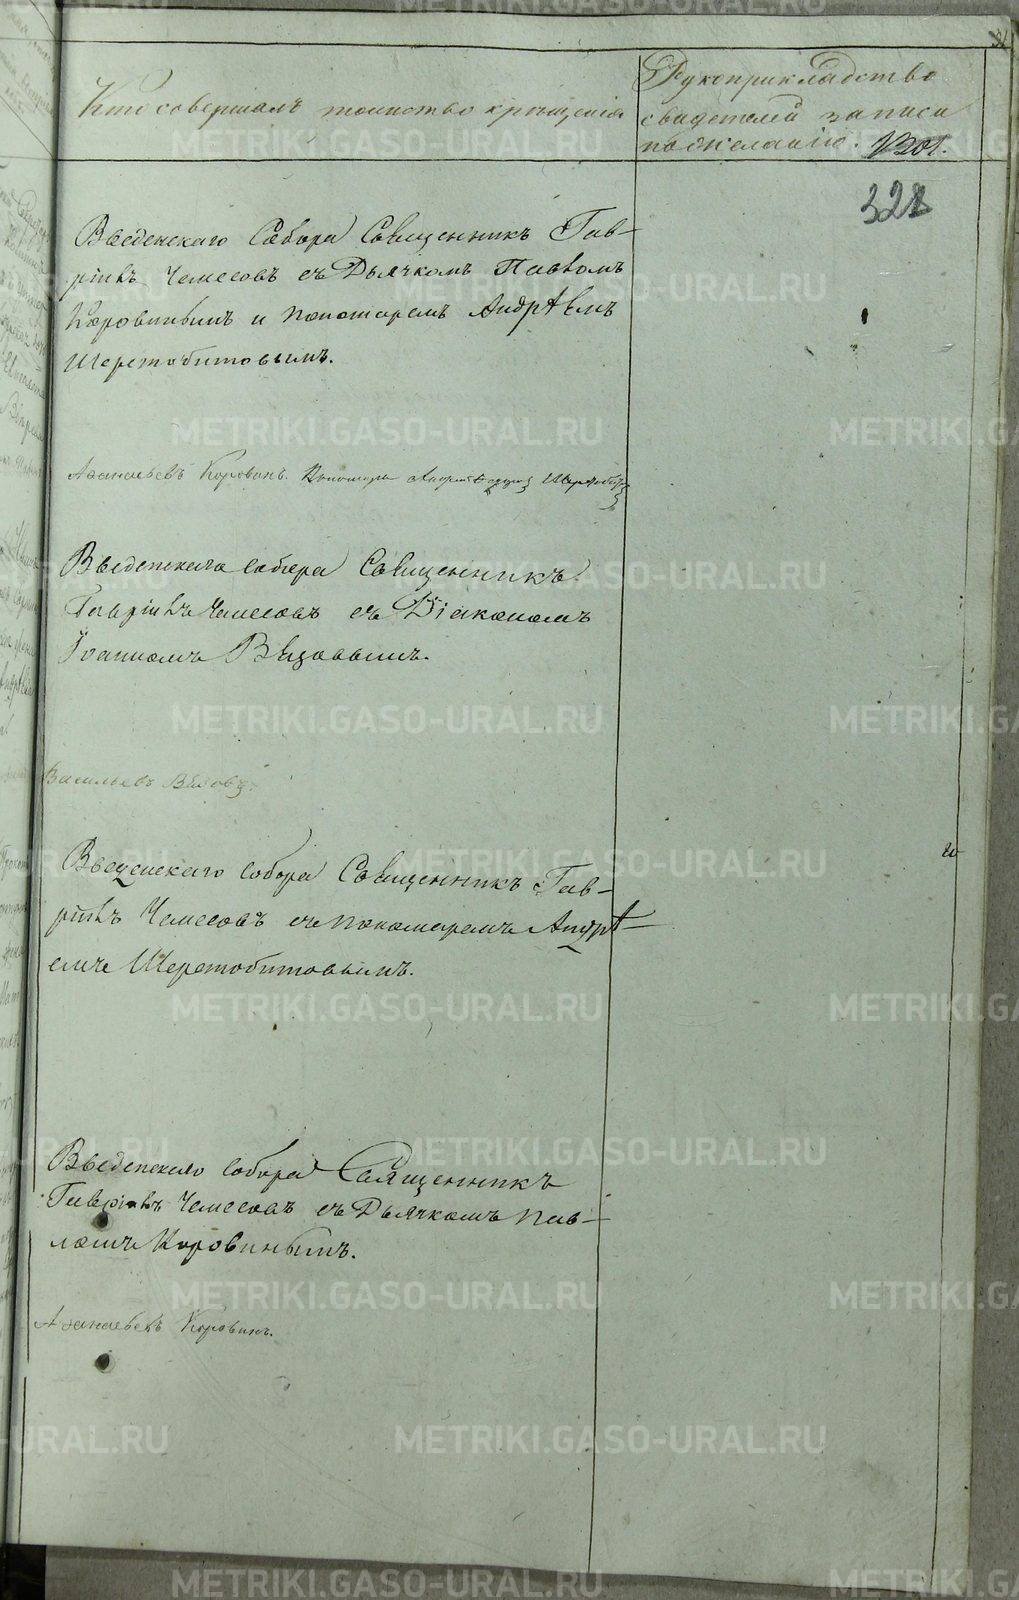 Кто совершалъ таинство крещенія
Рукоприкладство
свидетелей записи
по желанію.
328
Введенскаго Собора Священникъ Гав-
ріилъ Чемесовъ съ Дьячкомъ Павломъ
Коровинымъ и пономаремъ Андрѣемъ
Шеретобитовымъ.
Афанасьевъ Коровинъ. Пономарь Андрей
Введенскаго Собора Священникъ
Гавріилъ Чемесовъ съ Діакономъ
Іоанномъ Вязовымъ.
Васильевъ Вязовъ.
Введенскаго Собора Священникъ Гав-
ріилъ Чемесовъ съ пономаремъ Андрѣ-
емъ Шеретобитовымъ.
Введенскаго Собора Священникъ
Гавріилъ Чемесовъ съ Дьячкомъ Пав-
ломъ Коровинымъ.
Афанасьевъ Коровинъ.
METRIKI.GASO-URAL.RU